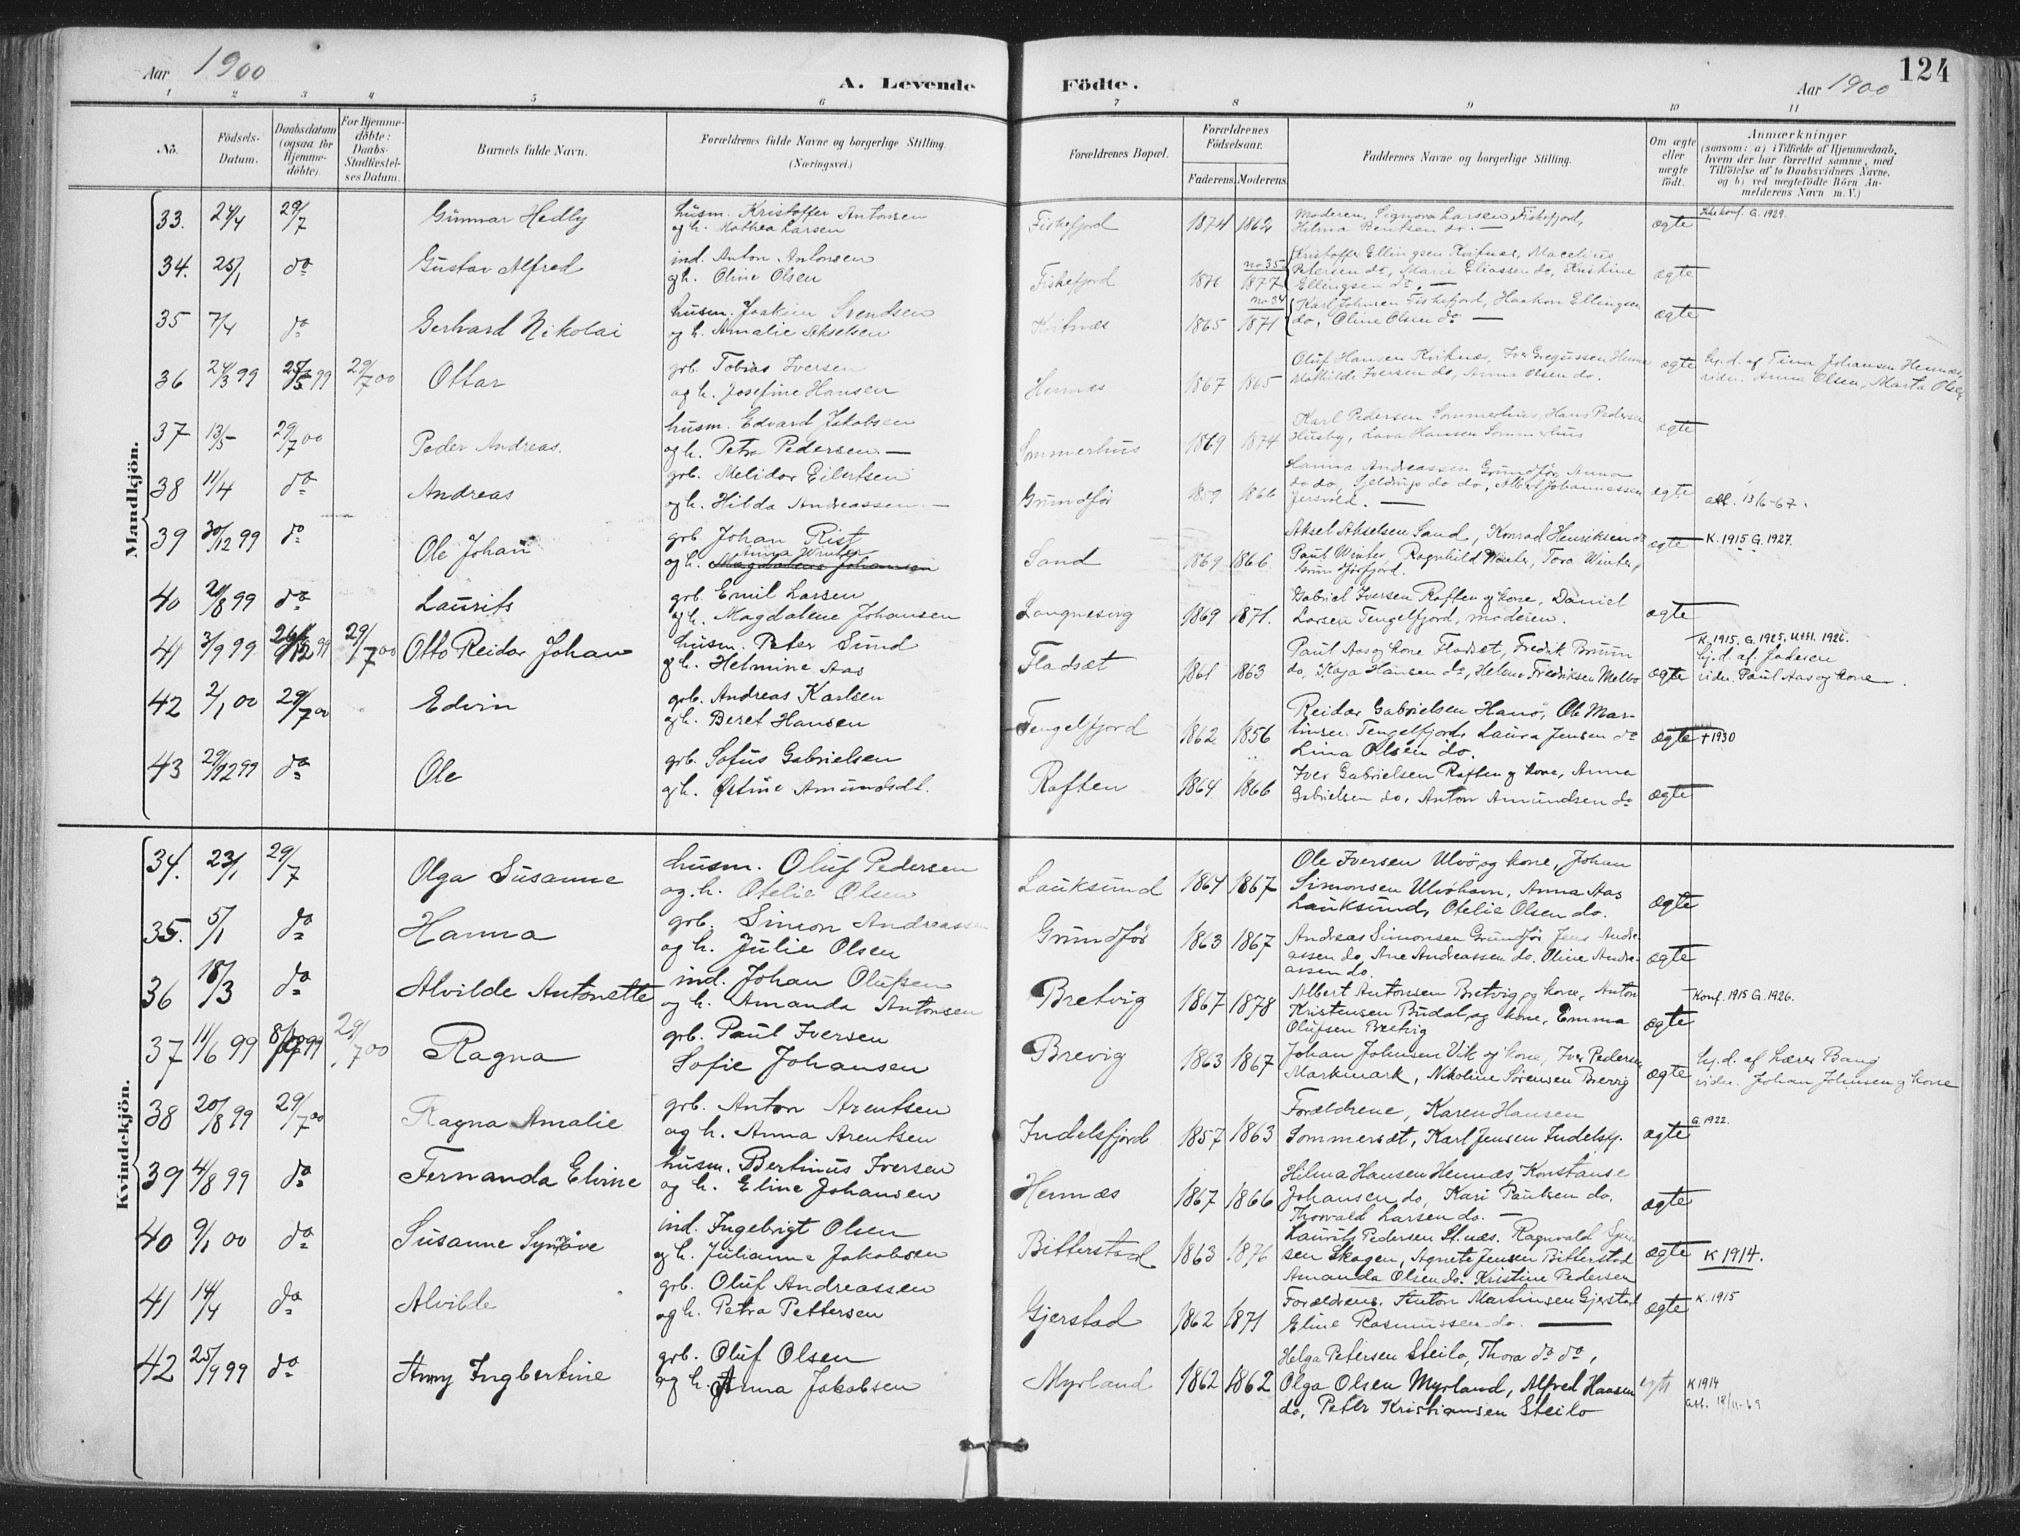 Aar 1900
A. Levende Födte.
Aar 1900
124
1 2 3 4 5 6 7 8 9 10 11
No.
Födsels-Datum.
Daabsdatum (ogsaa for Hjemme-döbte).
For Hjemme-döbte: Daabs-Stadfæstel-ses Datum.
Barnets fulde Navn.
Forældrenes fulde Navne og borgerlige Stilling. (Næringsvei.)
Forældrenes Bopæl.
Forældrenes Födselsaar.
Faderens. Moderens.
Faddernes Navne og borgerlige Stilling.
Om ægte eller uægte födt.
Anmærkninger
(saasom: a) i Tilfælde af Hjemmedaab,
hvem der har forrettet samme, med
Tilföielse af to Daabsvidners Navne,
og b) ved uægtefödte Börn An-
melderens Navn m. V.)
Mandkjön.
33. 24/4 29/7 Gunnar Hedly husm. Kristoffer Antonsen
og h. Mathea Larsen Fiskefjord 1874 1862 Moderen, Signora Larsen Fiskefjord,
Hilma Bentsen do. — ægte Ikke konf. G. 1929.
34. 25/1 do Gustav Alfred ind. Anton Antonsen
og h. Oline Olsen Fiskefjord 1877 no 35 Kristoffer Ellingsen Kvitnæs,
Petersen do, Marie Eliassen do, Kristine
Ellingsen do, — ægte
35 7/4 do Gerhard Nikolai husm. Joakim Svendsen
og h. Amalie Akselsen Kvitnæs 1865 1871 no 34 Karl Johnsen Fiskefjord, Haakon Ellingsen
do, Oline Olsen do — ægte
36 24/3 99 99 29/7 00 Ottar grb. Tobias Iversen
og h. Josefine Hansen Hennæs 1867 1865 Oluf Hansen Kvitnæs, Iver Gregussen Hennæs
Mathilde Iversen do, Anna Olsen do. ægte Hj.d. af Tina Johansen Hennæs,
viden. Anna Olsen, Marta Olsen
37 13/5 29/7 00 Peder Andreas. husm. Edvard Jakobsen
og h. Petra Pedersen — Sommerhus 1869 1874 Karl Pedersen Sommerhus, Hans Pedersen
Husby, Lava Hansen Sommerhus ægte
38 11/4 do Andreas grb. Melidor Eilertsen
og h. Hilda Andreassen. — Grundför 1859 1866 Hanna Andreassen Grundför, Anna
do do, do do, Albert Johannessen
— ægte att. 13/6-67.
39 30/12 99 do Ole Johan grb. Johan Rist
og h. Anna Winter Magdalene Johansen Sand 1869 1866 Aksel Akselsen Sand, Konrad Henriksen do
Paul Winter, Ragnhild Winter, Tora Winter,
Grundförfjord. ægte K. 1915 G. 1927.
40 2/8 99 do Laurits grb. Emil Larsen
og h. Magdalene Johansen Langnesvig 1869 1871. Gabriel Iversen Raften og kone, Daniel
Larsen Tengelfjord, moderen. ægte
41 3/9 99 99 29/7 00 Otto Reidar Johan husm. Peter Sund
og h. Helmine Aas Fladsæt 1861 1863 Paul Aas og kone Fladsæt, Fredik Bruun
do, Kaja Hansen do, Helene Fredriksen Melbo ægte K. 1915. G. 1925. Utfl. 1926.
Hj.d. af faderen
viden. Paul Aas og kone.
42 2/1 00 29/7 00 Edvin grb. Andreas Karlsen
og h. Beret Hansen Tengelfjord 1862 1856 Reidar Gabrielsen Hanö, Ole Mar-
tinsen Tengelfjord, Laura Jensen do
Lina Olsen do. ægte + 1930
43 29/12 99 do Ole grb. Sofus Gabrielsen
og h. Östine Amundsdt. Raften 1864 1866 Iver Gabrielsen Raften og kone, Anna
Gabrielsen do, Anton Amundsen do ægte
Kvindekjön.
34. 23/1 29/7 Olga Susanne husm. Oluf Pedersen
og. h. Otelie Olsen Lauksund 1864 1867 Ole Iversen Ulvö og kone, Johan
Simonsen Ulvöhavn, Anna Aas
Lauksund, Otelie Olsen do. ægte
35. 5/1 do Hanna grb. Simon Andreassen
og h. Julie Olsen Grundför 1863 1867 Andreas Simonsen Grundför Jens Andre-
assen do, Ane Andreassen do, Oline Andre-
assen do. ægte
36 18/3 do Alvilde Antonette ind. Johan Olufsen
og h. Amanda Antonsen Bretvig 1867 1878 Albert Antonsen Bretvig og kone, Anton
Kristensen Budal og kone, Emma
Olufsen Bretvig ægte Konf. 1915 G. 1926.
37 11/6 99 99 29/7 00 Ragna grb. Paul Iversen
Sofie Johansen Brevig 1863 1867 Johan Johnsen Vik og kone, Iver Pedersen
Markmark, Nikoline Sörensen Brevig ægte Hj.d. af Lærer Bang
viden. Johan Johnsen og kone
38 20/8 99 29/7 00 Ragna Amalie grb. Anton Arentsen
og h. Anna Arentsen Indelsfjord 1857 1863 Forældrene, Karen Hansen
Sommersæt, Karl Jensen Indelsfj. ægte G. 1922.
39 4/8 99 do Fernanda Elvine husm. Bertinus Iversen
og h. Eline Johansen Hennæs 1867 1866 Hilma Hansen Hennæs, Konstanse
Johansen do, Kari Paulsen do,
Thorvald Larsen do. — ægte
40 9/1 00 do Susanne Synnöve ind. Ingebrigt Olsen
og h. Julianne Jakobsen Bitterstad 1863 1876 Laurits Pedersen St.næs. Ragnvald
sen Skagen, Agnete Jensen Bitterstad
Amanda Olsen do. Kristine Pedersen ægte K 1914.
41 14/4 do Alvilde grb. Oluf Andreassen
og h. Petra Pettersen Gjerstad 1862 1871 Forældrene. Anton Martinsen Gjerstad
Eline Rasmussen do. — ægte K. 1915
42 25/9 99 do Anny Ingbertine grb. Oluf Olsen
og h. Anna Jakobsen Myrland 1862 1862 Helga Petersen Steilo, Thora do do,
Olga Olsen Myrland, Alfred Hansen
do, Peter Kristiansen Steilo ægte K 1914
att. 18/11-69